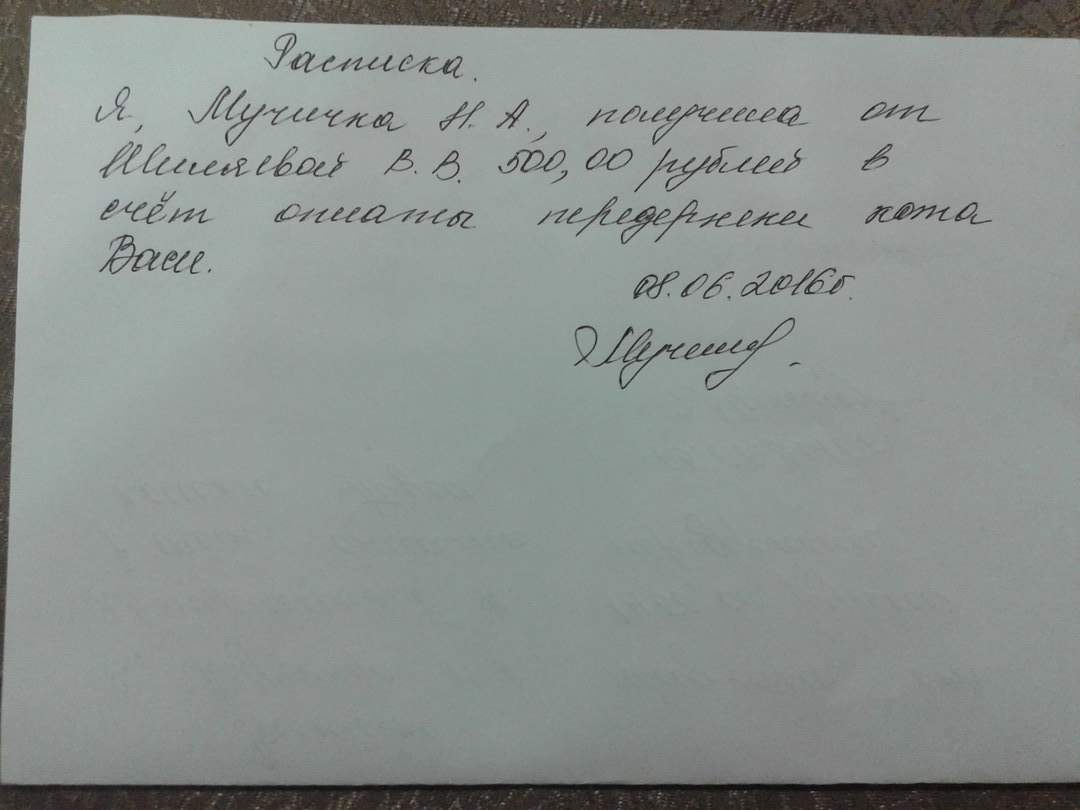 Расписка.
Я, Мучичка Н. А., получила от
Шиляевой В. В. 500,00 рублей в
счёт оплаты передержки кота
Васи.
08.06.2016г.